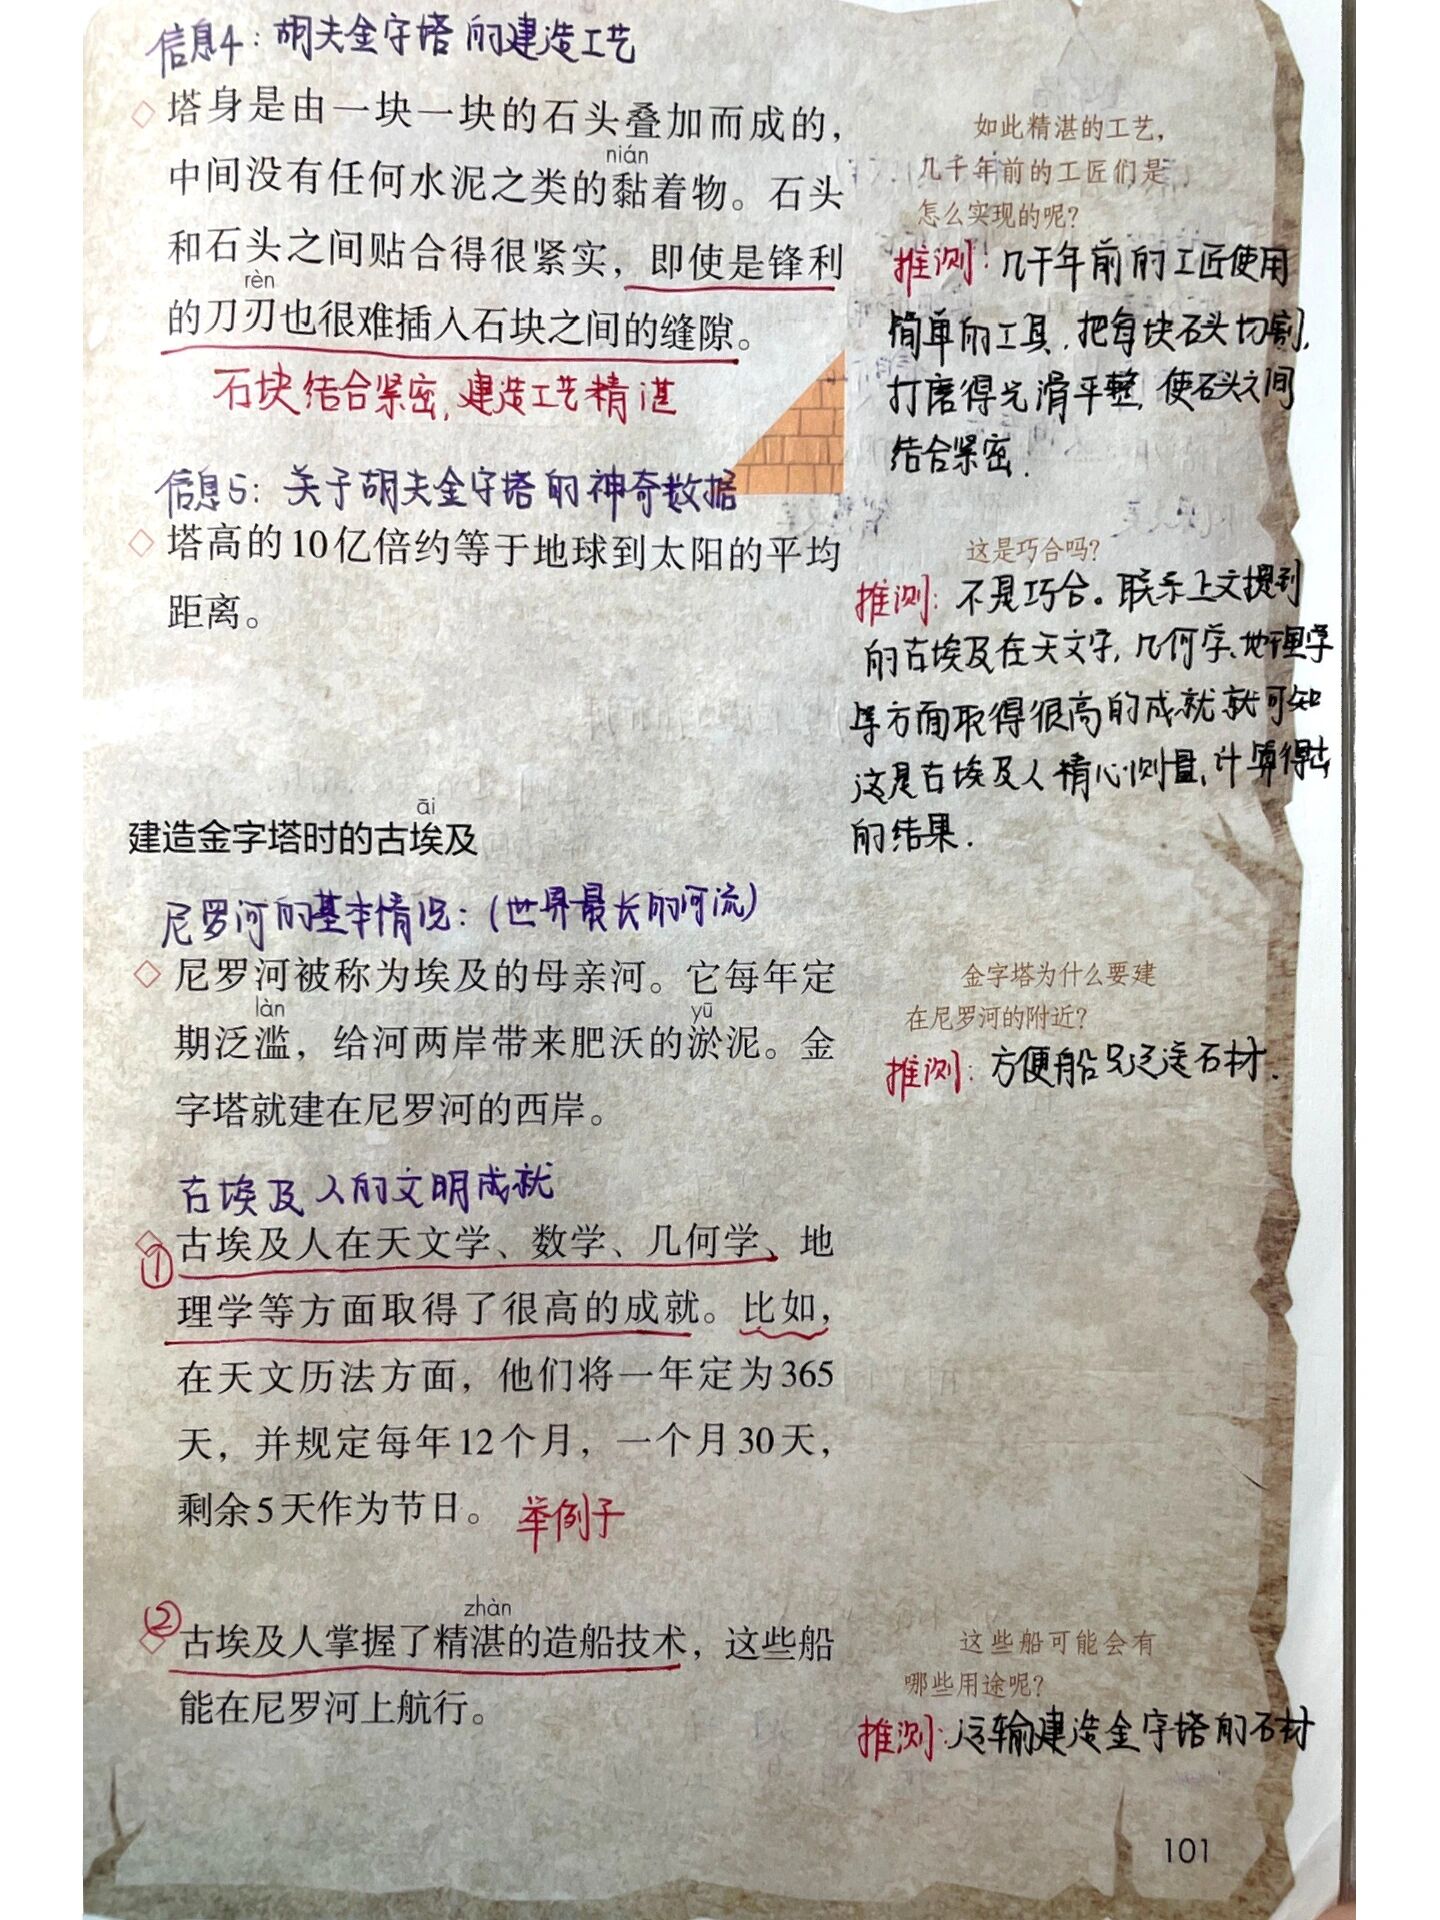 信息4：胡夫金字塔的建造工艺
塔身是由一块一块的石头叠加而成的，
nián
中间没有任何水泥之类的黏着物。石头
和石头之间贴合得很紧实，即使是锋利
rèn
的刀刃也很难插入石块之间的缝隙。
石块结合紧密，建造工艺精湛
如此精湛的工艺，
几千年前的工匠们是
怎么实现的呢？
推测：几千年前的工匠使用
简单的工具，把每块石头切割，
打磨得光滑平整，使石头之间
结合紧密．
信息5：关于胡夫金字塔的神奇数据
塔高的10亿倍约等于地球到太阳的平均
距离。
这是巧合吗？
推测：不是巧合。联系上文提到
的古埃及在天文学，几何学、地理学
等方面取得很高的成就就可知
这是古埃及人精心测量，计算得出
的结果．
āi
建造金字塔时的古埃及
尼罗河的基本情况：（世界最长的河流）
尼罗河被称为埃及的母亲河。它每年定
làn yū
期泛滥，给河两岸带来肥沃的淤泥。金
字塔就建在尼罗河的西岸。
金字塔为什么要建
在尼罗河的附近？
推测：方便船只运送石材．
古埃及人的文明成就
①古埃及人在天文学、数学、几何学、地
理学等方面取得了很高的成就。比如，
在天文历法方面，他们将一年定为365
天，并规定每年12个月，一个月30天，
剩余5天作为节日。 举例子
zhàn
②古埃及人掌握了精湛的造船技术，这些船
能在尼罗河上航行。
这些船可能会有
哪些用途呢？
推测：运输建造金字塔的石材
101